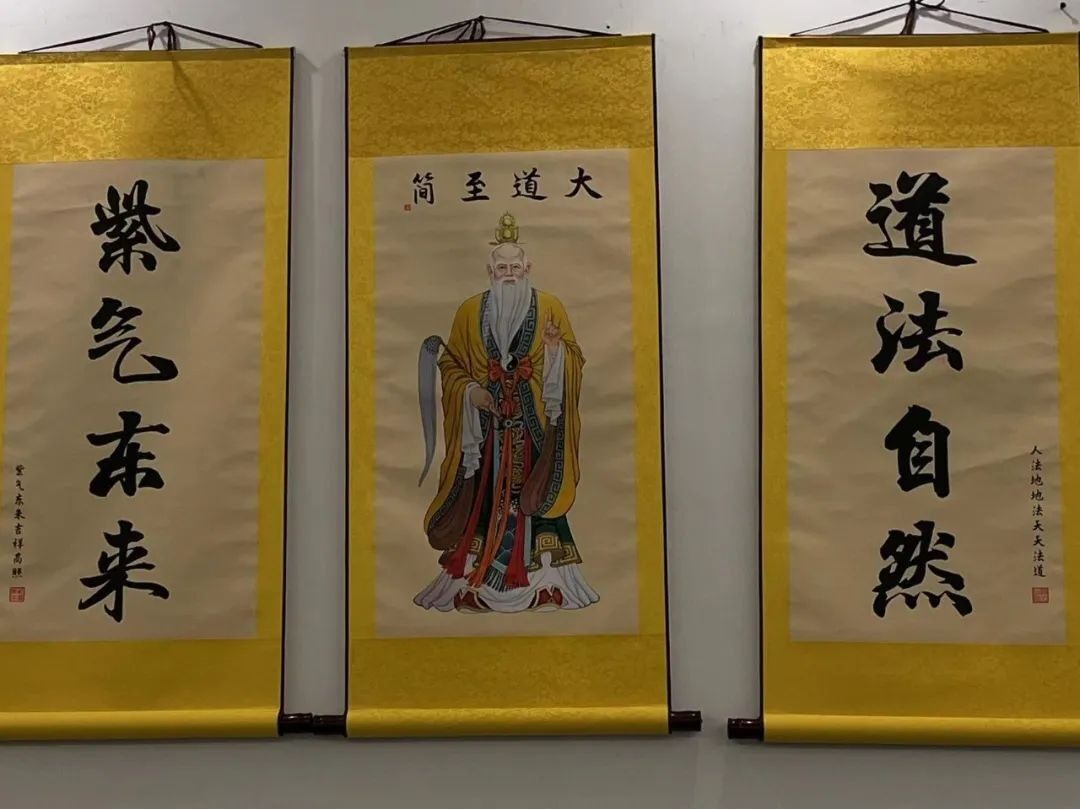 道法自然
人法地地法天天法道
大道至简
紫气东来
紫气东来吉祥高照